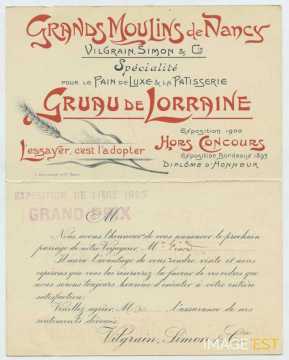 GRANDS MOULINS DE NANCY
VILGRAIN, SIMON & Cie
Spécialité
POUR LE PAIN DE LUXE & LA PATISSERIE
GRUAU DE LORRAINE
Exposition 1900
HORS CONCOURS
L'essayer, c'est l'adopter
Exposition Bordeaux 1895
DIPLÔME D'HONNEUR
EXPOSITION DE LIEGE 1905
GRAND PRIX
M
Nous avons l'honneur de vous annoncer le prochain
passage de notre Voyageur, Mr
Il aura l'avantage de vous rendre visite et nous
espérons que vous lui réserverez la faveur de vos ordres que
nous aurons toujours honneur d'exécuter à votre entière
satisfaction.
Veuillez agréer, M l'assurance de nos
sentiments dévoués.
Vilgrain, Simon & Cie
IMAGE'EST